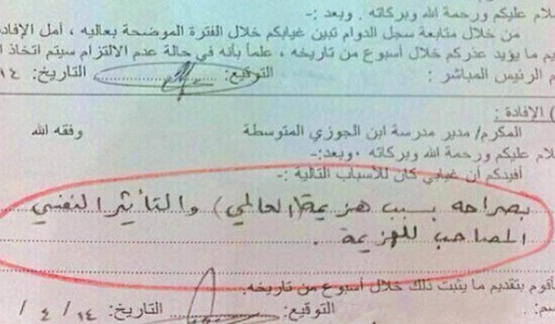 لام عليكم ورحمة الله وبركاته . وبعد :-
من خلال متابعة سجل الدوام تبين غيابكم خلال الفترة الموضحة بعاليه ، أمل الإفاد
ديم ما يؤيد عذركم خلال أسبوع من تاريخه ، علماً بأنه في حالة عدم الالتزام سيتم اتخاذ ا
الرئيس المباشر : التوقيع: التاريخ: ١٤
) الإفادة :
المكرم/ مدير مدرسة ابن الجوزي المتوسطة وفقه الله
لام عليكم ورحمة الله وبركاته ٠وبعد:-
أفيدكم أن غيابي كان للأسباب التالية :-
بصراحه بسبب هزيمة (العالمي) والتأثير النفسي
المصاحب للهزيمة .
أقوم بتقديم ما يثبت ذلك خلال أسبوع من تاريخه.
التوقيع: التاريخ: ١٤ / ٤ /